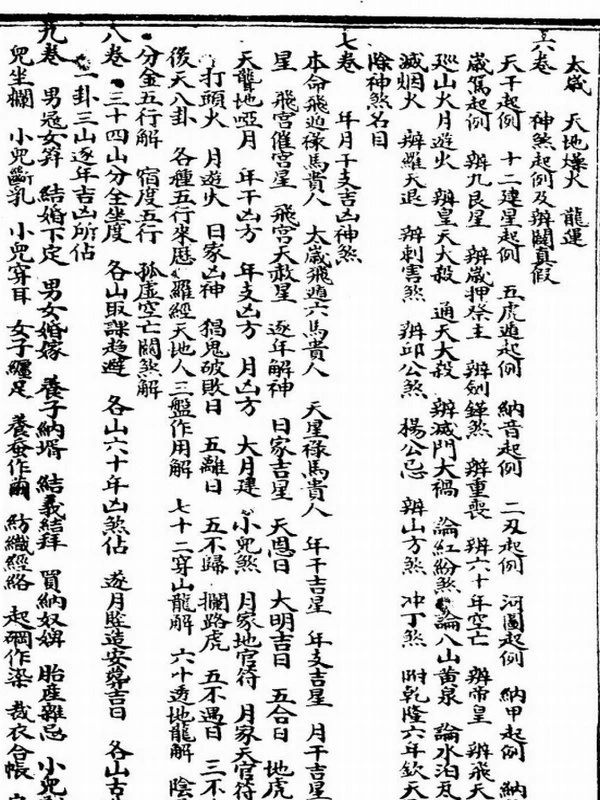 太歲 天地燥火 龍運
六卷 神煞起例及辨闢真假
天干起例 十二建星起例 五虎遁起例 納音起例 二刃起例 河圖起例 納甲起例 納
歲馬起例 辨九良星 辨歲押祭主 辨劍鋒煞 辨重喪 辨六十年空亡 辨帝皇 辨飛天
巡山火月遊火 辨皇天大殺 通天大殺 辨滅門大禍 論紅紛煞 論八山黃泉 論水泊及
滅烟火 辨羅天退 辨刺害煞 辨邱公煞 楊公忌 辨山方煞 冲丁煞 附乾隆六年欽天
除神煞名目
七卷 年月干支吉凶神煞
本命飛遁祿馬貴人 太歲飛遁六馬貴人 天星祿馬貴人 年干吉星 年支吉星 月干吉星
星 飛宮催官星 飛宮天赦星 逐年解神 日家吉星 天恩日 大明吉日 五合日 地虎
天聾地啞月 年干凶方 年支凶方 月凶方 大月建 小兒煞 月家地官符 月家天官符
打頭火 月遊火 日家凶神 猖鬼破敗日 五離日 五不歸 攔路虎 五不遇日 三不
後天八卦 各種五行來歷 羅經天地人三盤作用解 七十二穿山龍解 六十透地龍解 陰
分金五行解 宿度五行 孤虛空亡關煞解
八卷 二十四山分全坐度 各山取課趋避 各山六十年凶煞佔 逐月豎造安葬吉日 各山古
一卦三山逐年吉凶所佔
九卷 男冠女笄 結婚下定 男女婚嫁 養子納壻 結義結拜 買納奴婢 胎產雜忌 小兒剃
兒坐欄 小兒斷乳 小兒穿耳 女子纏足 養蚕作繭 紡織經絡 起硐作染 裁衣合帳